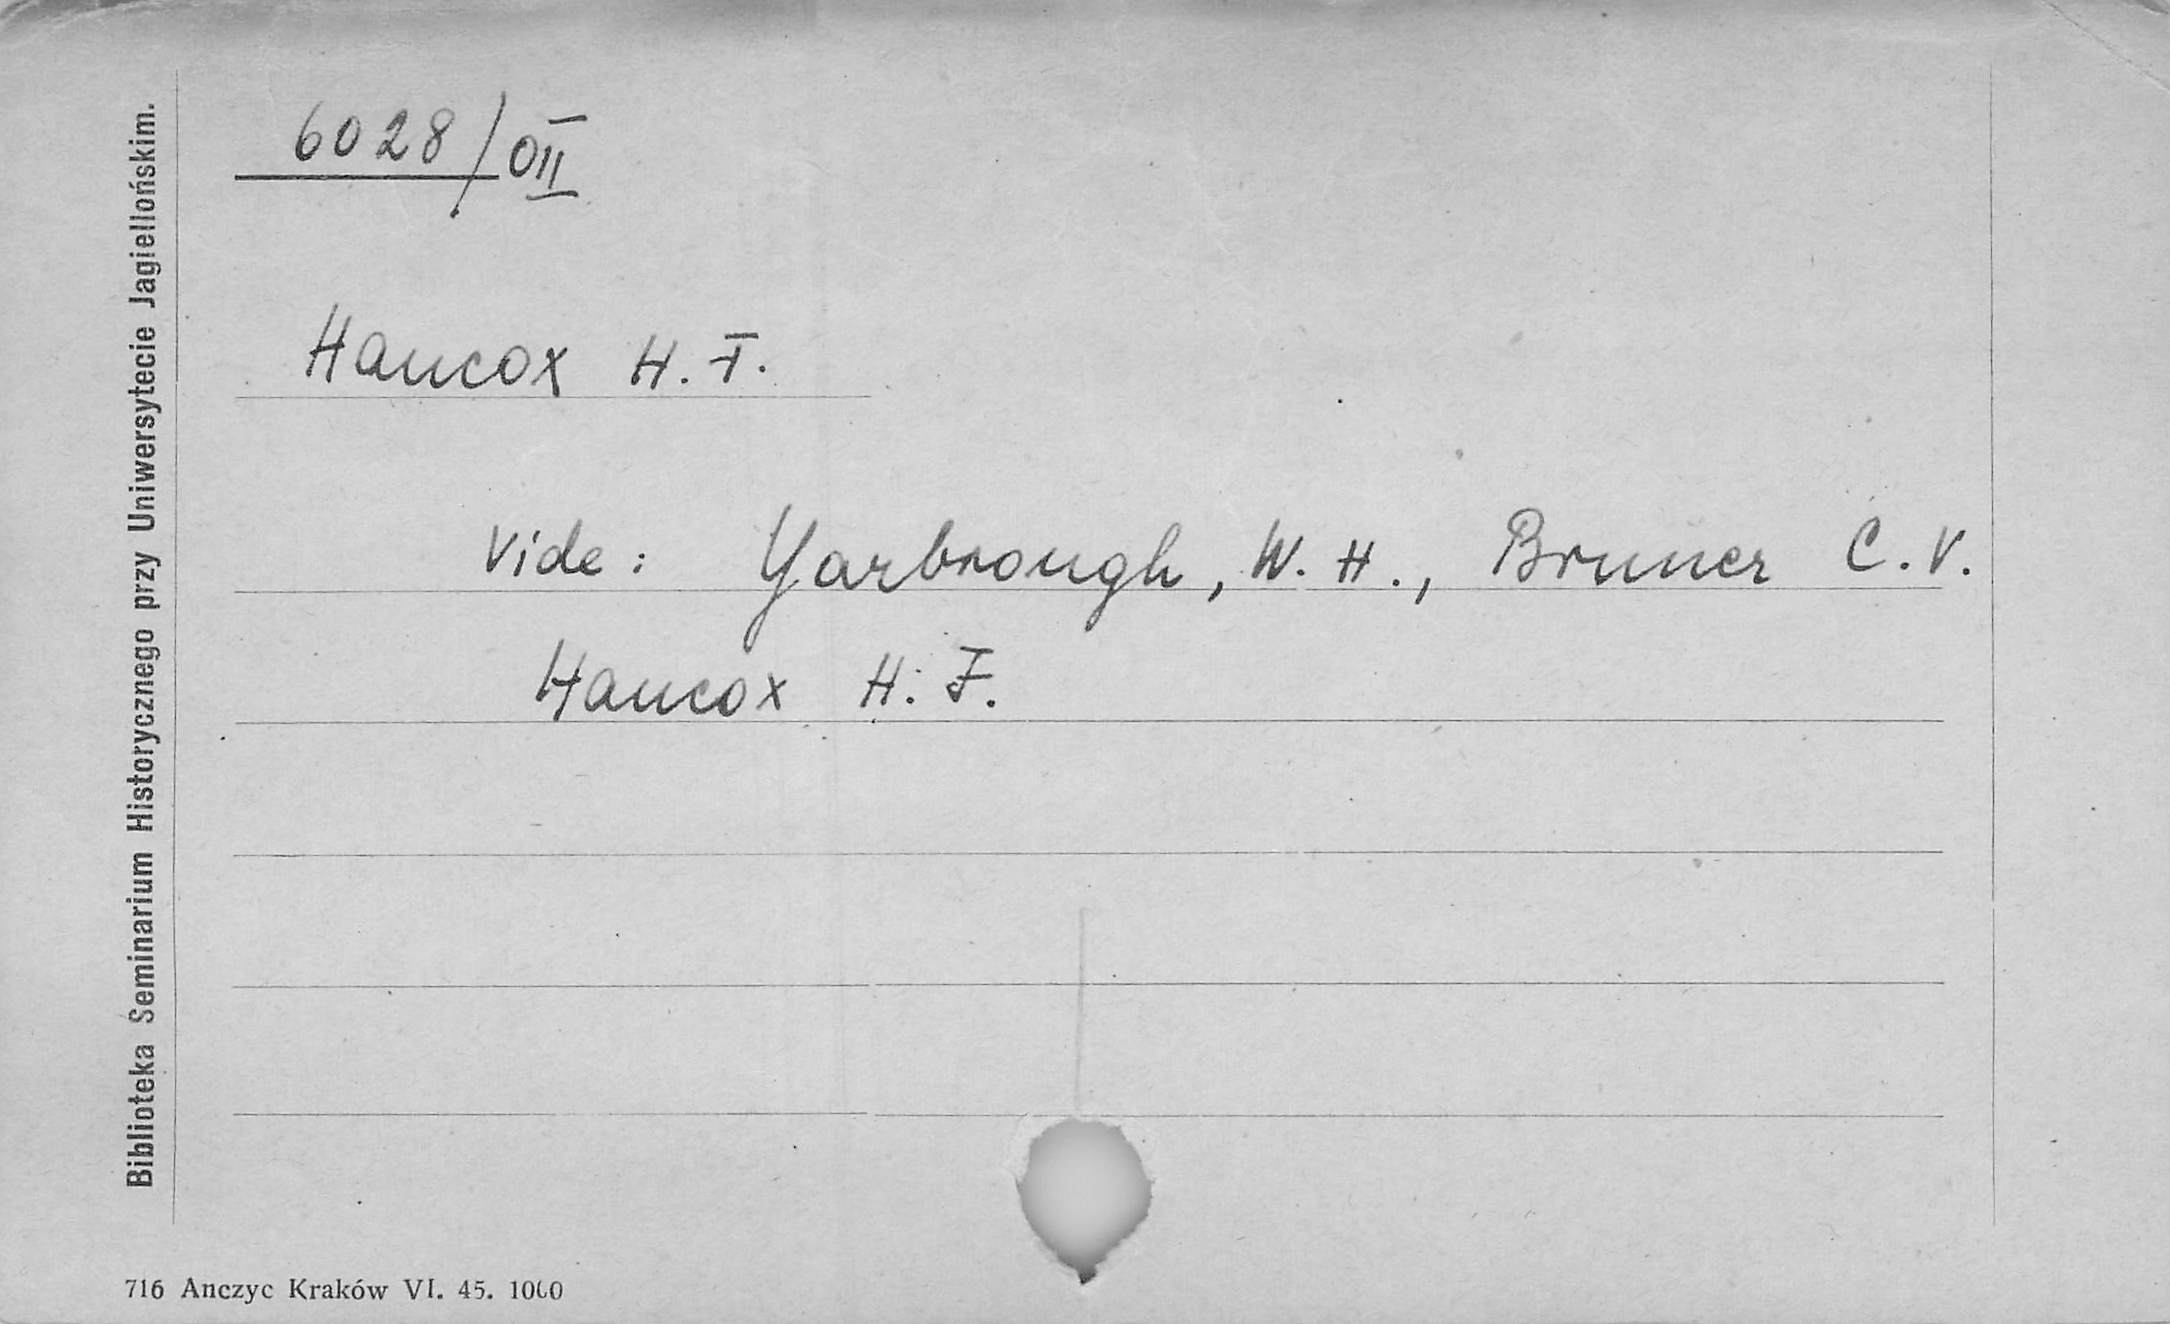 6028/OII
Hancox H. F.
Vide: Yarbrough, W. H., Bruner C. V.
Hancox H. F.
Biblioteka Seminarium Historycznego przy Uniwersytecie Jagiellońskim.
716 Anczyc Kraków VI. 45. 1000